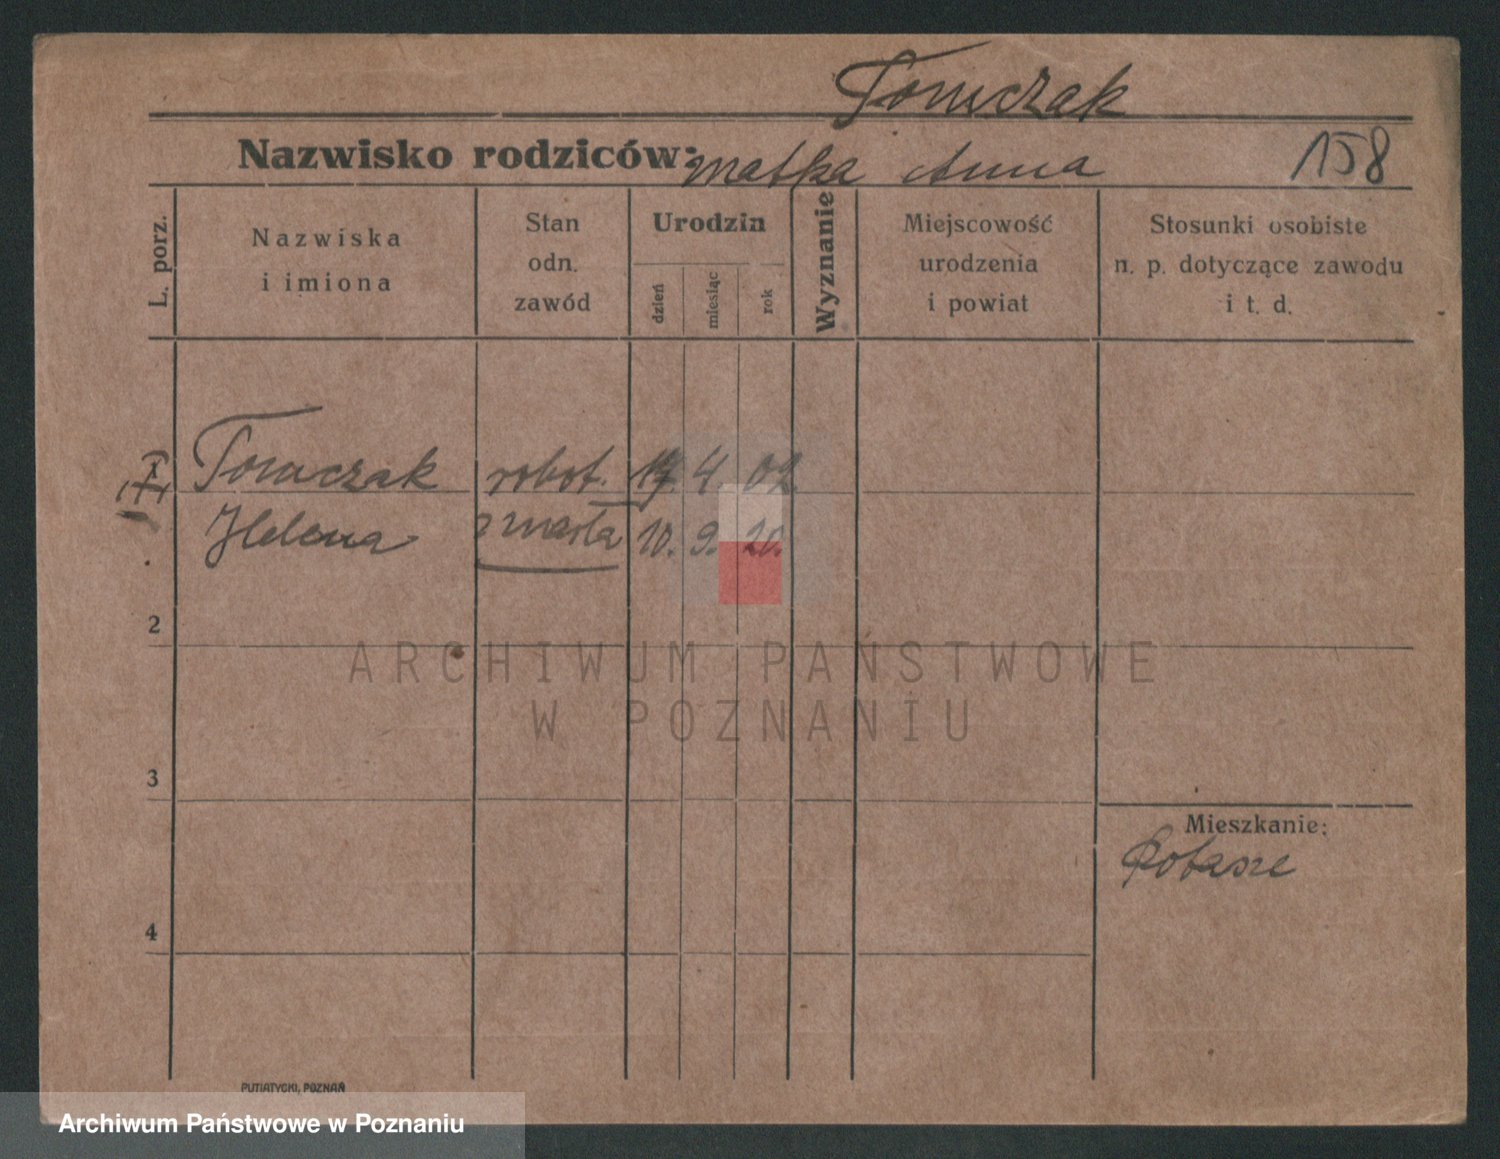 Tomczak
Nazwisko rodziców: matka Anna
158
L. porz.
Nazwiska
i imiona
Stan
odn.
zawód
Urodzin
dzień
miesiąc
rok
Wyznanie
Miejscowość
urodzenia
i powiat
Stosunki osobiste
n. p. dotyczące zawodu
i t. d.
Tomczak robot. 4. 02
Helena zmarła 10. 9. 20.
2
ARCHIWUM PAŃSTWOWE
W POZNANIU
3
Mieszkanie:
Potasze
4
PUTIATYCKI, POZNAŃ
Archiwum Państwowe w Poznaniu